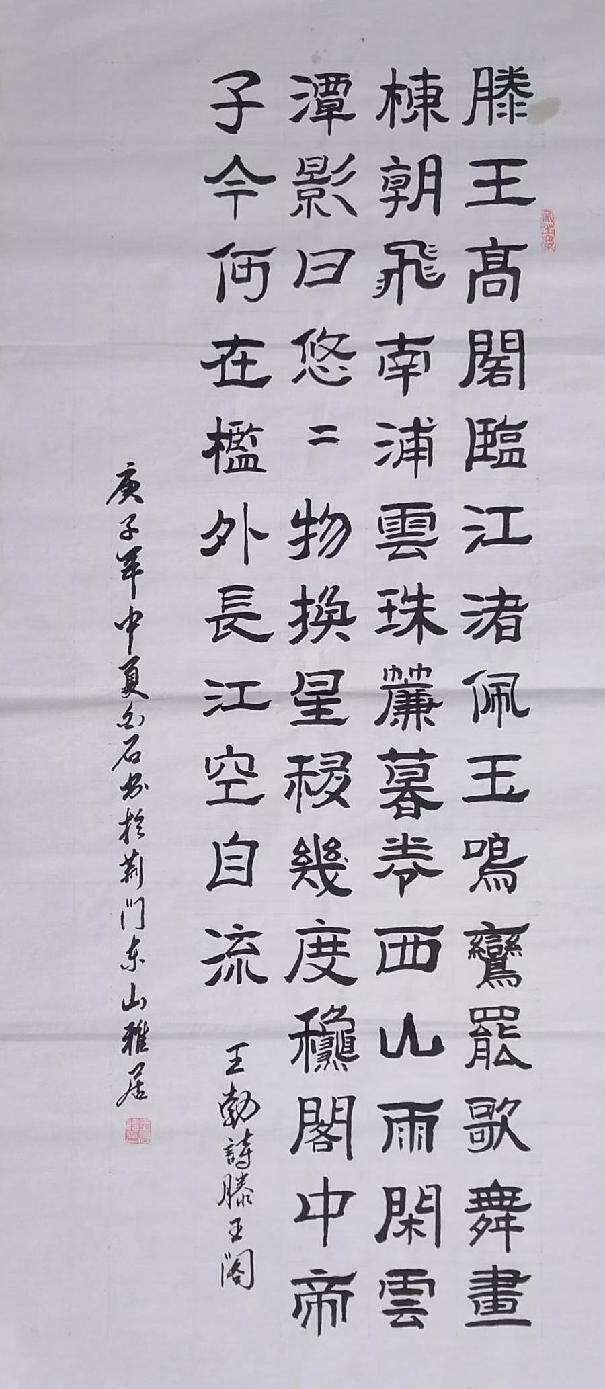 滕王髙閣臨江渚佩玉鳴鸞罷歌舞畫
棟朝飛南浦雲珠簾暮卷西山雨閑雲
潭影日悠〻物換星移幾度龝閣中帝
子今何在檻外長江空自流
王勃詩滕王阁
庚子年中夏白石书於荆门东山雅居